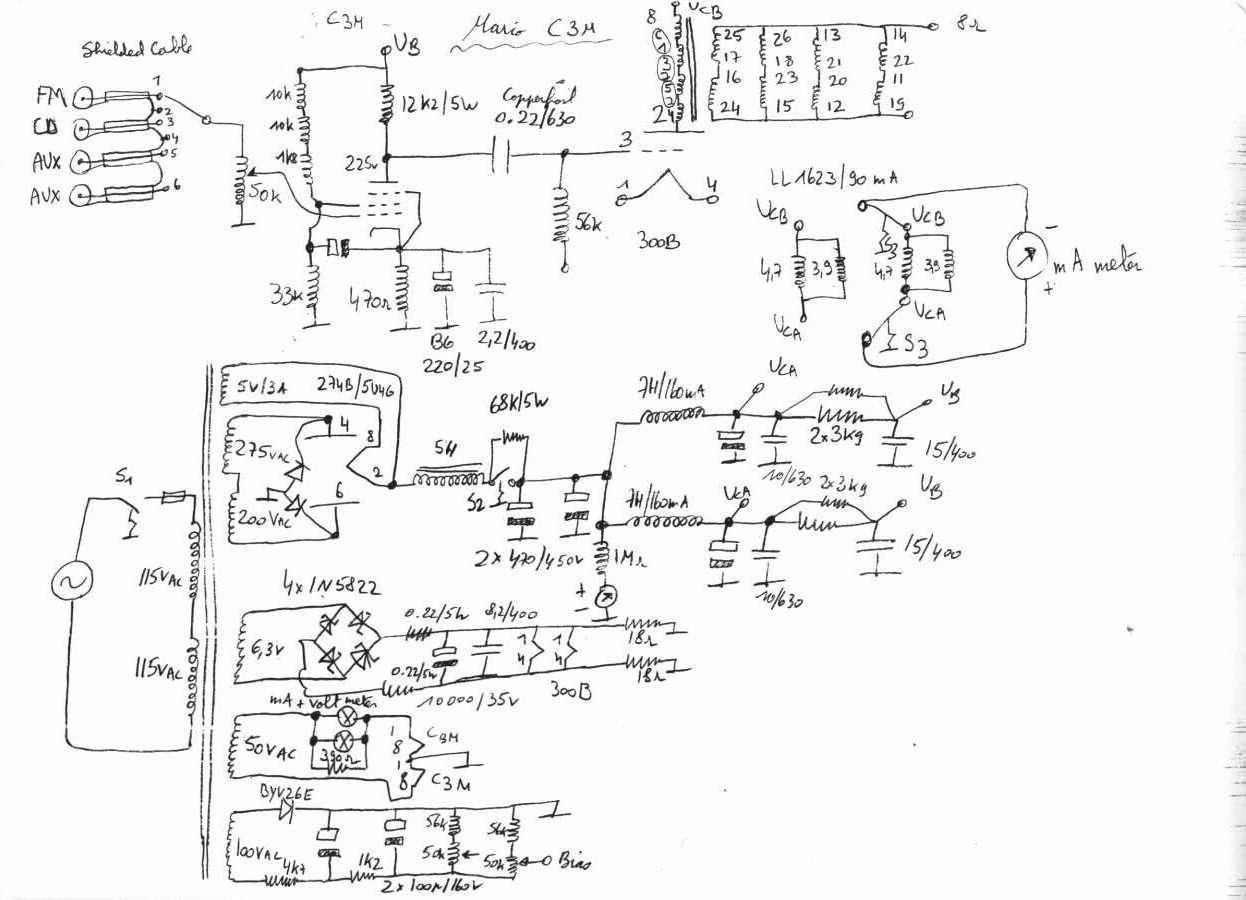 C3M
Mario C3M
Shielded Cable
FM
CD
AUX
AUX
1
2
3
4
5
6
50k
UB
10k
10k
1k8
12k2/5W
225v
Copperfoil
0.22/630
56k
33k
470Ω
B6
220/25
2,2/400
8
UCB
24
3
1
4
300B
25
17
16
24
26
18
23
15
13
21
20
12
14
22
11
19
8Ω
LL1623/90mA
UCB
4,7
3,9
UCA
UCB
S3
4,7
3,9
UCA
S3
-
mA meter
+
5V/3A
274B/5U4G
275VAC
200VAC
4
8
2
6
5H
68K/5W
S2
2x470/450V
1MΩ
+
-
7H/160mA
UCA
10/630
2x3k9
UB
15/400
7H/160mA
UCA
10/630
2x3k9
UB
15/400
S1
115VAC
115VAC
4x1N5822
6,3V
0.22/5W
8,2/400
0.22/5W
10000/35V
1
4
1
4
300B
18Ω
18Ω
mA + volt meter
50VAC
390Ω
1
8
1
8
C3M
C3M
BYV26E
100VAC
4k7
1k2
2x100µ/160V
56k
50k
56k
50k
Bias